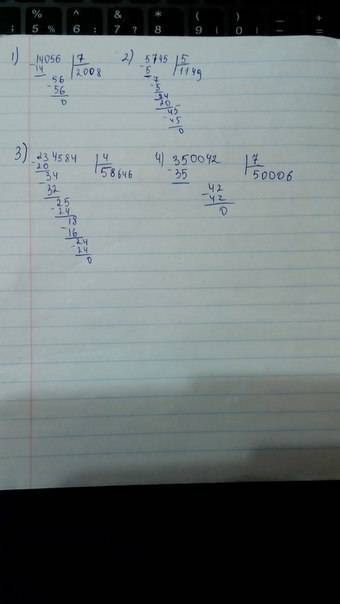 % & ( ) +
; 5 % 6 : 7 ? 8 9 0 - =
1) 14056 | 7
14 2008
-56
56
0
2) 5745 | 5
-5 1149
7
-5
24
20
-45
45
0
3) -234584 | 4
20 58646
-34
32
-25
24
-18
16
-24
24
0
4) 350042 | 7
-35 50006
-42
42
0